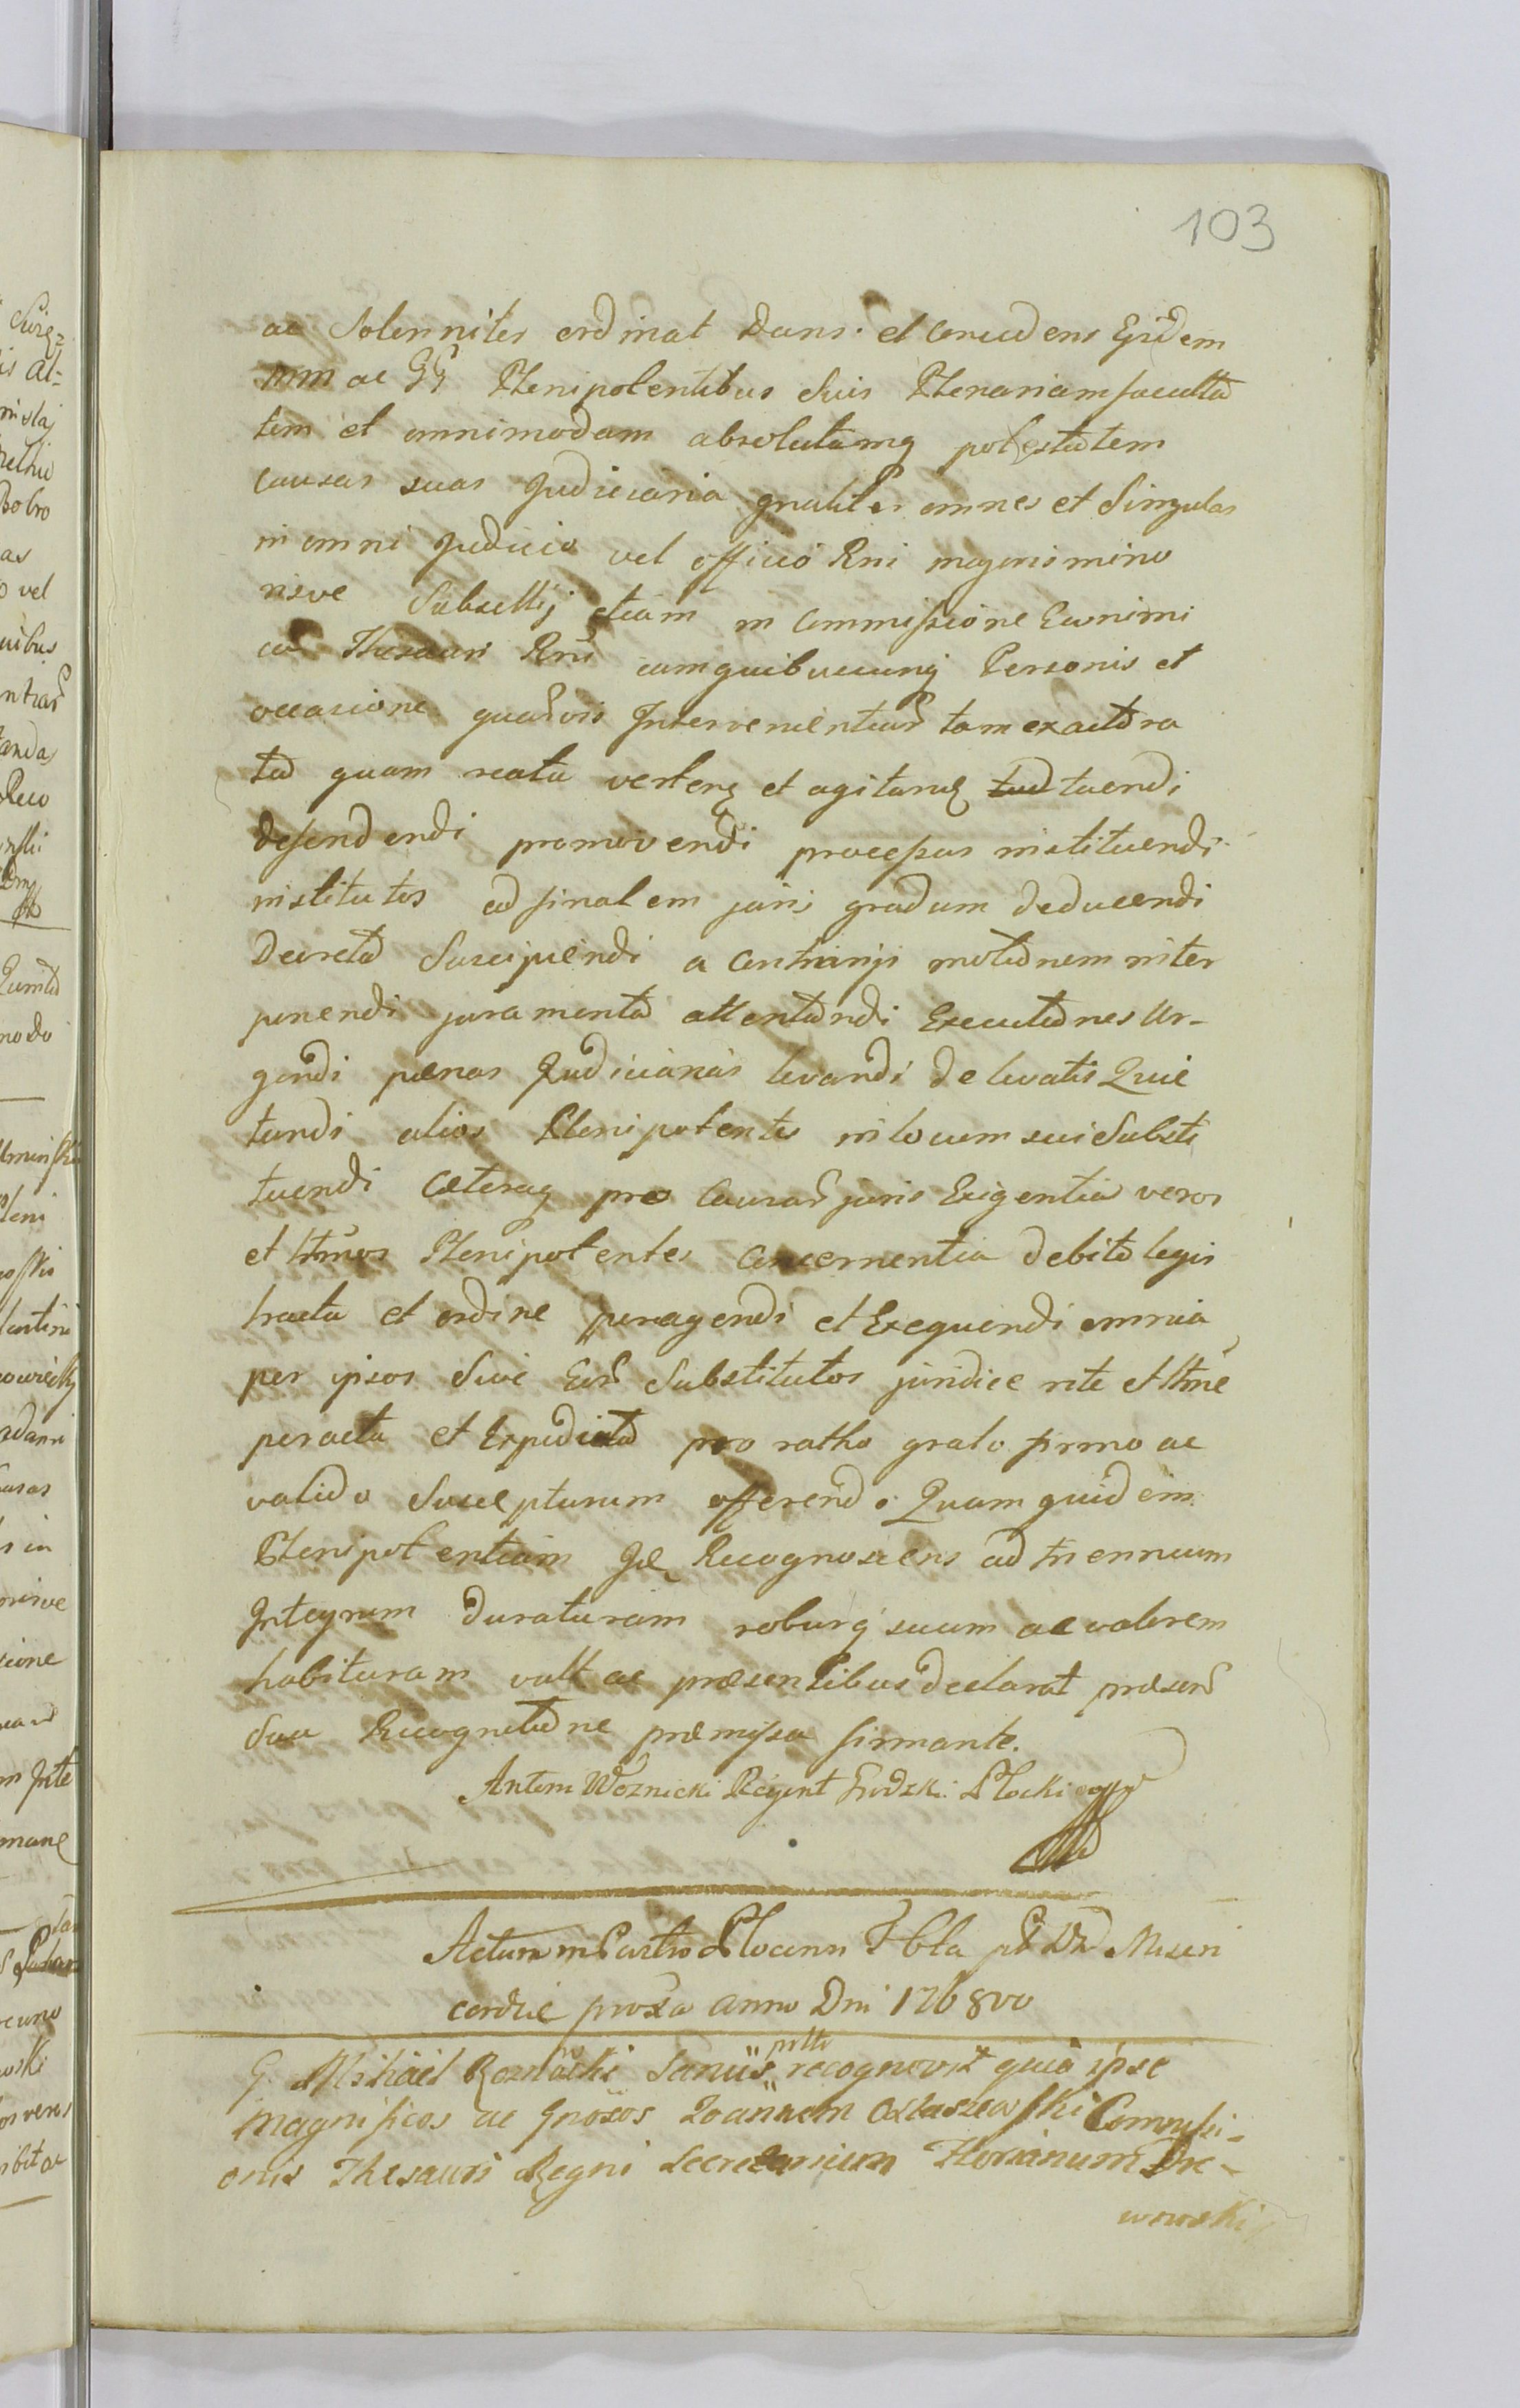 103
ac Solenniter ordinat Dans et Concedens Eisdem
mm ac GG Plenipotentibus Suis Plenariam faculta
tem et omnimodam absolutamq potestatem
Causas suas Judiciaria gnaliter omnes et Singulas
in omni Judicio vel officio Rni majoris mino
risve Subsellij etiam in Commissione Economi
ca Thesauri Rni cum quibuscunq Personis et
occasione quarvis Intervenientiar tam ex actora
tu quam reatu verten et agitan tuendi
defendendi promovendi processus instituendi
institutos ad finalem juris gradum deducendi
Decreta Suscipiendi a Contrarijs motionem inter
ponendi juramenta attentandi Executiones Ur-
gendi pænas Judiciarias levandi de levatis Quie
tandi alios Plenipotentes in locum sui Substi
tuendi Cæteraq pro Causar juris Exigentia veros
et ltmos Plenipotentes Concernentia debito legis
tractu et ordine peragendi et Exequendi omnia
per ipsos Sive Eor Substitutos juridice rite et ltme
peracta et Expedita pro ratho grato firmo ac
valido Suscepturum offerendo Quam quidem
Plenipotentiam Recognoscens ad triennium
Integrum duraturam roburq suum ac valorem
habituram vult ac præsentibus declarat præsen
Sua Recognitione præmissa firmante.
Antoni Woznicki Regent Grodzki Płocki
Actum in Castro Plocen Fbla pt Dn Miseri
cordie proxa anno Dni 1768vo
G. Mihael Romocki Sanus recognovit quia ipse
Magnificos ac Gnosos Joannem Ostaszewski Commissi-
onis Thesauri Regni Secretarium Florianum Dre-
wnowski